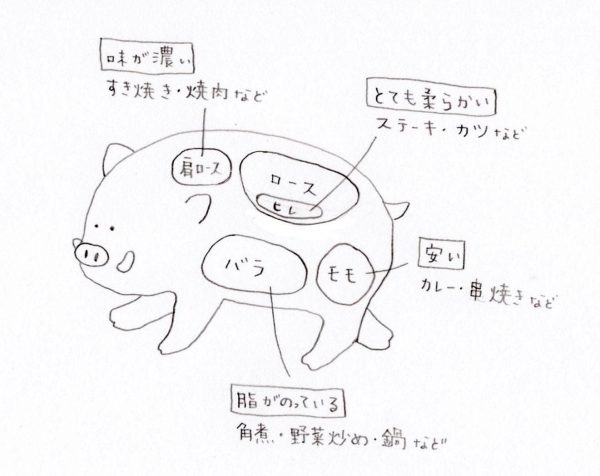 味が濃い
すき焼き・焼肉など
とても柔らかい
ステーキ・カツなど
肩ロース
ロース
ヒレ
バラ
モモ
安い
カレー・串焼きなど
脂がのっている
角煮・野菜炒め・鍋など